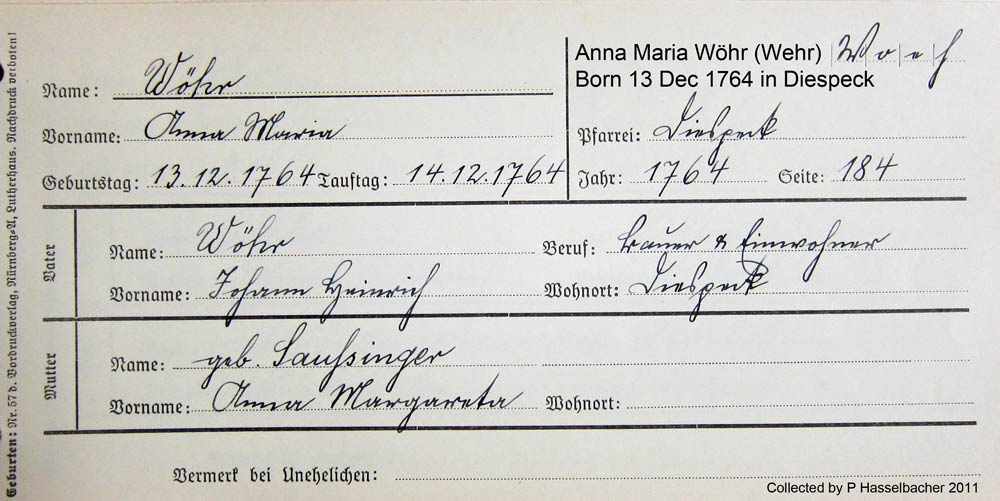 Geburten: Nr. 57 d. Vordruckverlag, Nürnberg-A, Lutherhaus. Nachdruck verboten!
Anna Maria Wöhr (Wehr) W o e h
Born 13 Dec 1764 in Diespeck
Name: Wöhr
Vorname: Anna Maria Pfarrei: Diespeck
Geburtstag: 13.12.1764 Tauftag: 14.12.1764 Jahr: 1764 Seite: 184
Vater
Name: Wöhr Beruf: Bauer & Einwohner
Vorname: Johann Heinrich Wohnort: Diespeck
Mutter
Name: geb.
Vorname: Anna Margareta Wohnort:
Vermerk bei Unehelichen:
Collected by P Hasselbacher 2011